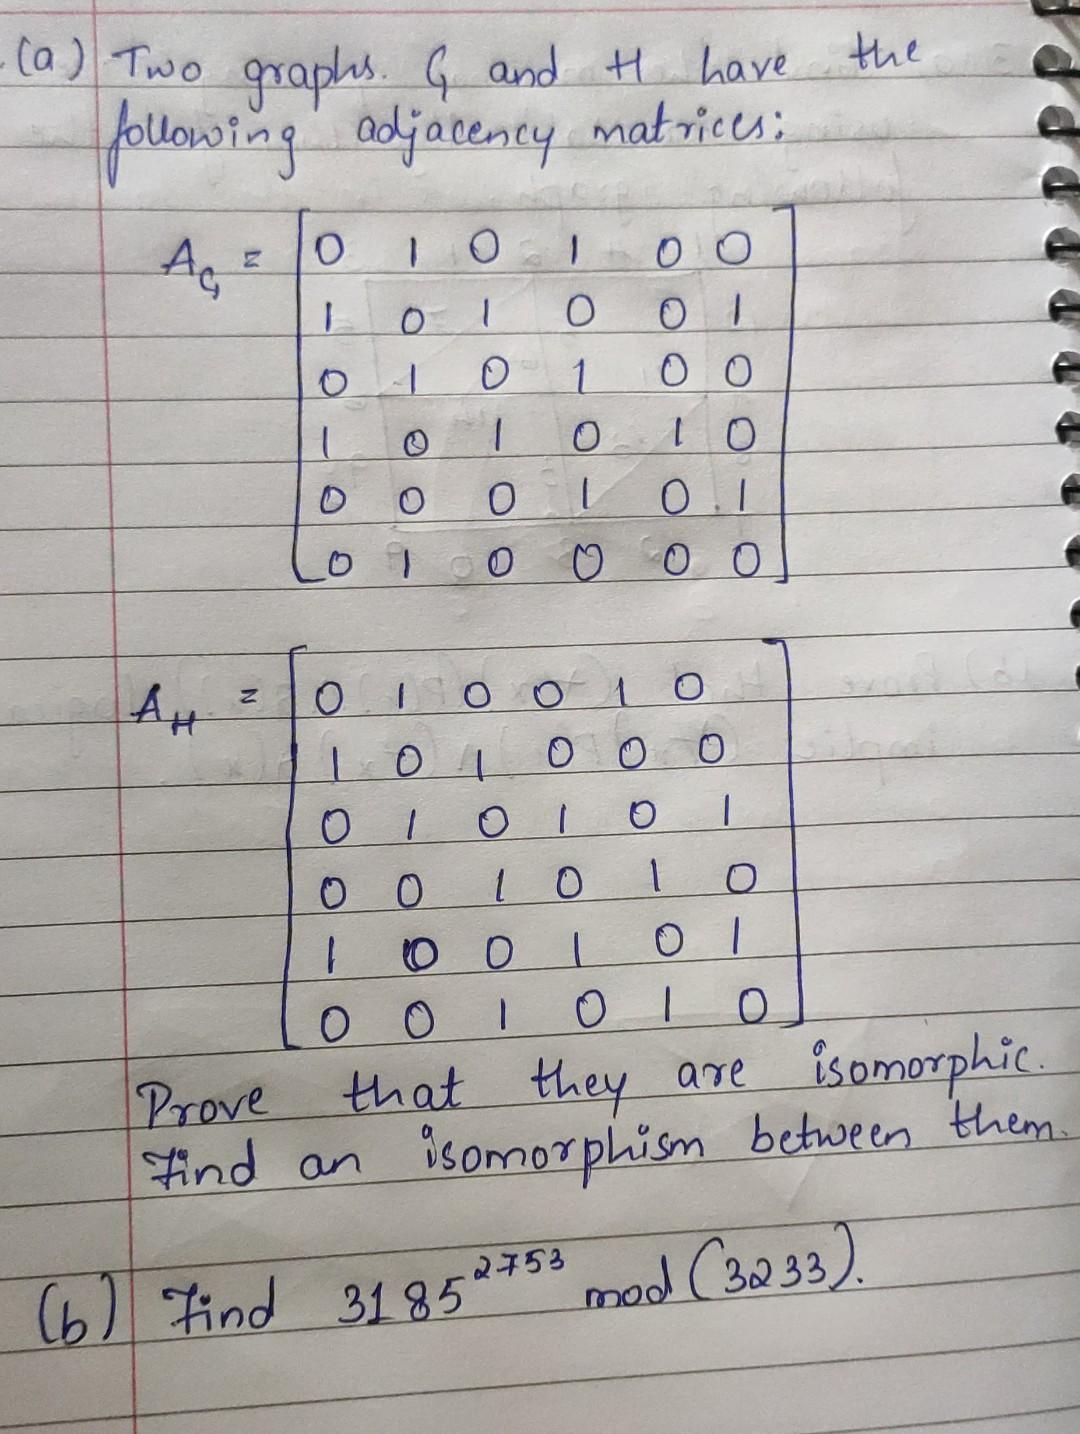 (a) Two graphs. G and H have the
following adjacency matrices:
A_G = [0 1 0 1 0 0
1 0 1 0 0 1
0 1 0 1 0 0
1 0 1 0 1 0
0 0 0 1 0 1
0 1 0 0 0 0]
A_H = [0 1 0 0 1 0
1 0 1 0 0 0
0 1 0 1 0 1
0 0 1 0 1 0
1 0 0 1 0 1
0 0 1 0 1 0]
Prove that they are isomorphic.
Find an isomorphism between them.
(b) Find 3185^2753 mod (3233).